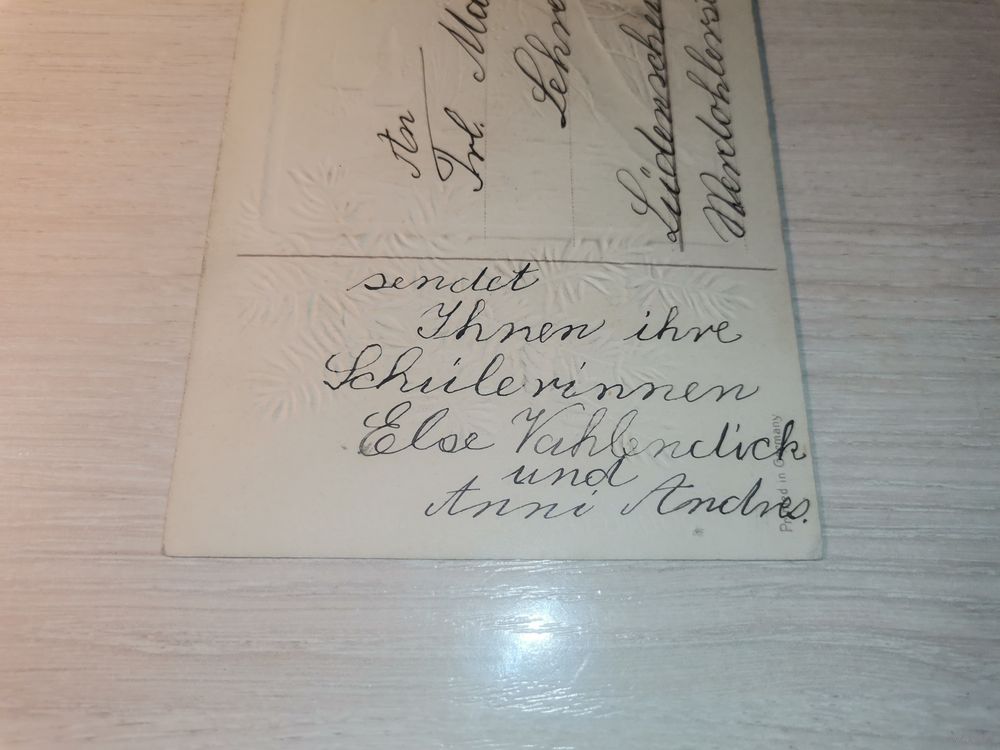 An
Frl. Ma
Lehre
Lüdensche
Werdohlerst
sendet
Ihnen ihre
Schülerinnen
Else Vahlendick
und
Anni Andres.
Printed in Germany